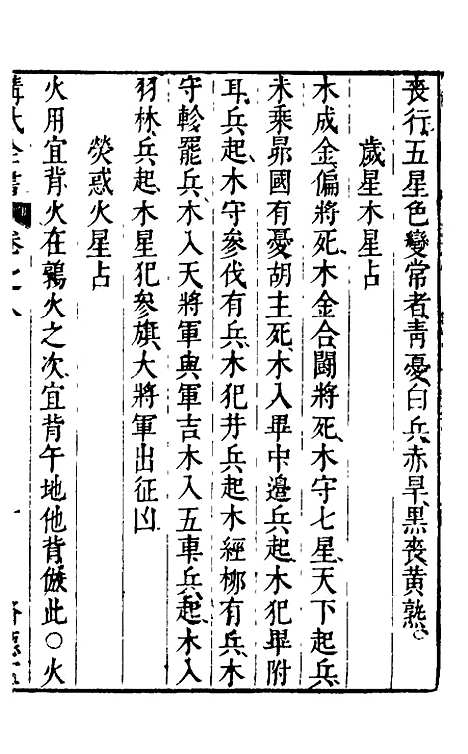 喪行五星色變常者青憂白兵赤旱黑喪黄熟○
歲星木星占
木成金偏將死木金合鬪將死木守七星天下起兵
木乘昴國有憂胡主死木入畢中邊兵起木犯畢附
耳兵起木守參伐有兵木犯井兵起木經栁有兵木
守軫罷兵木入天將軍輿軍吉木入五車兵起木入
羽林兵起木星犯參旗大將軍出征凶
熒惑火星占
火用宜背火在鶉火之次宜背午地他背倣此○火
武全書 卷之八